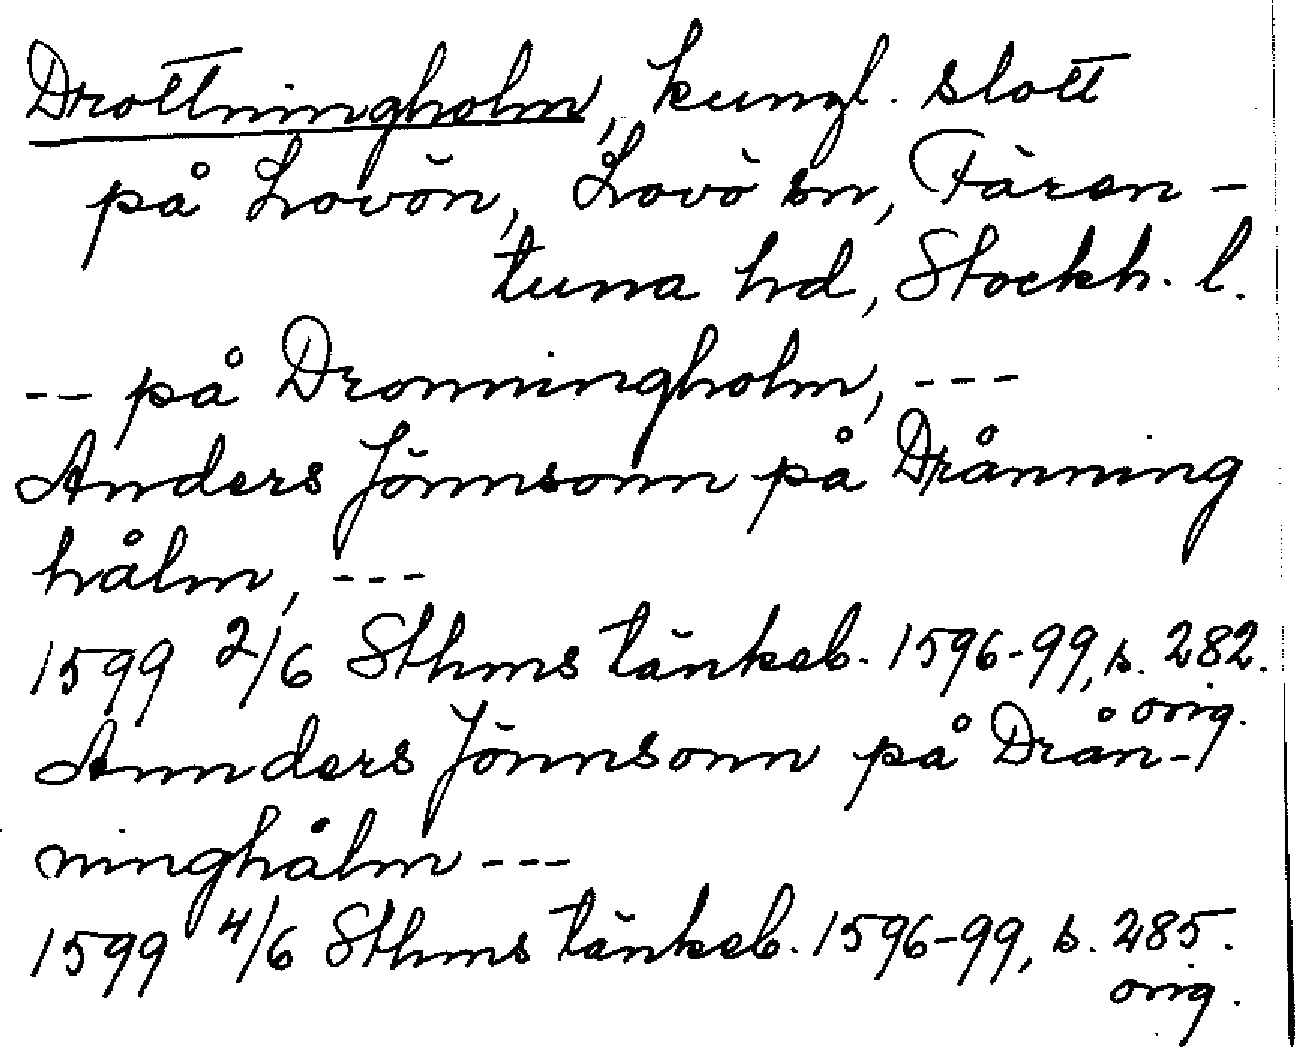 Drottningholm, kungl. slott
på Lovön, Lovö sn, Fären-
tuna hd, Stockh. l.
-- på Dronningholm, ---
Anders Jönnsonn på Drånning
hålm, ---
1599 2/6 Sthms tänkeb. 1596-99, s. 282.
orig.
Annders Jönnsonn på Drån-
ninghålm ---
1599 4/6 Sthms tänkeb. 1596-99, s. 285.
orig.